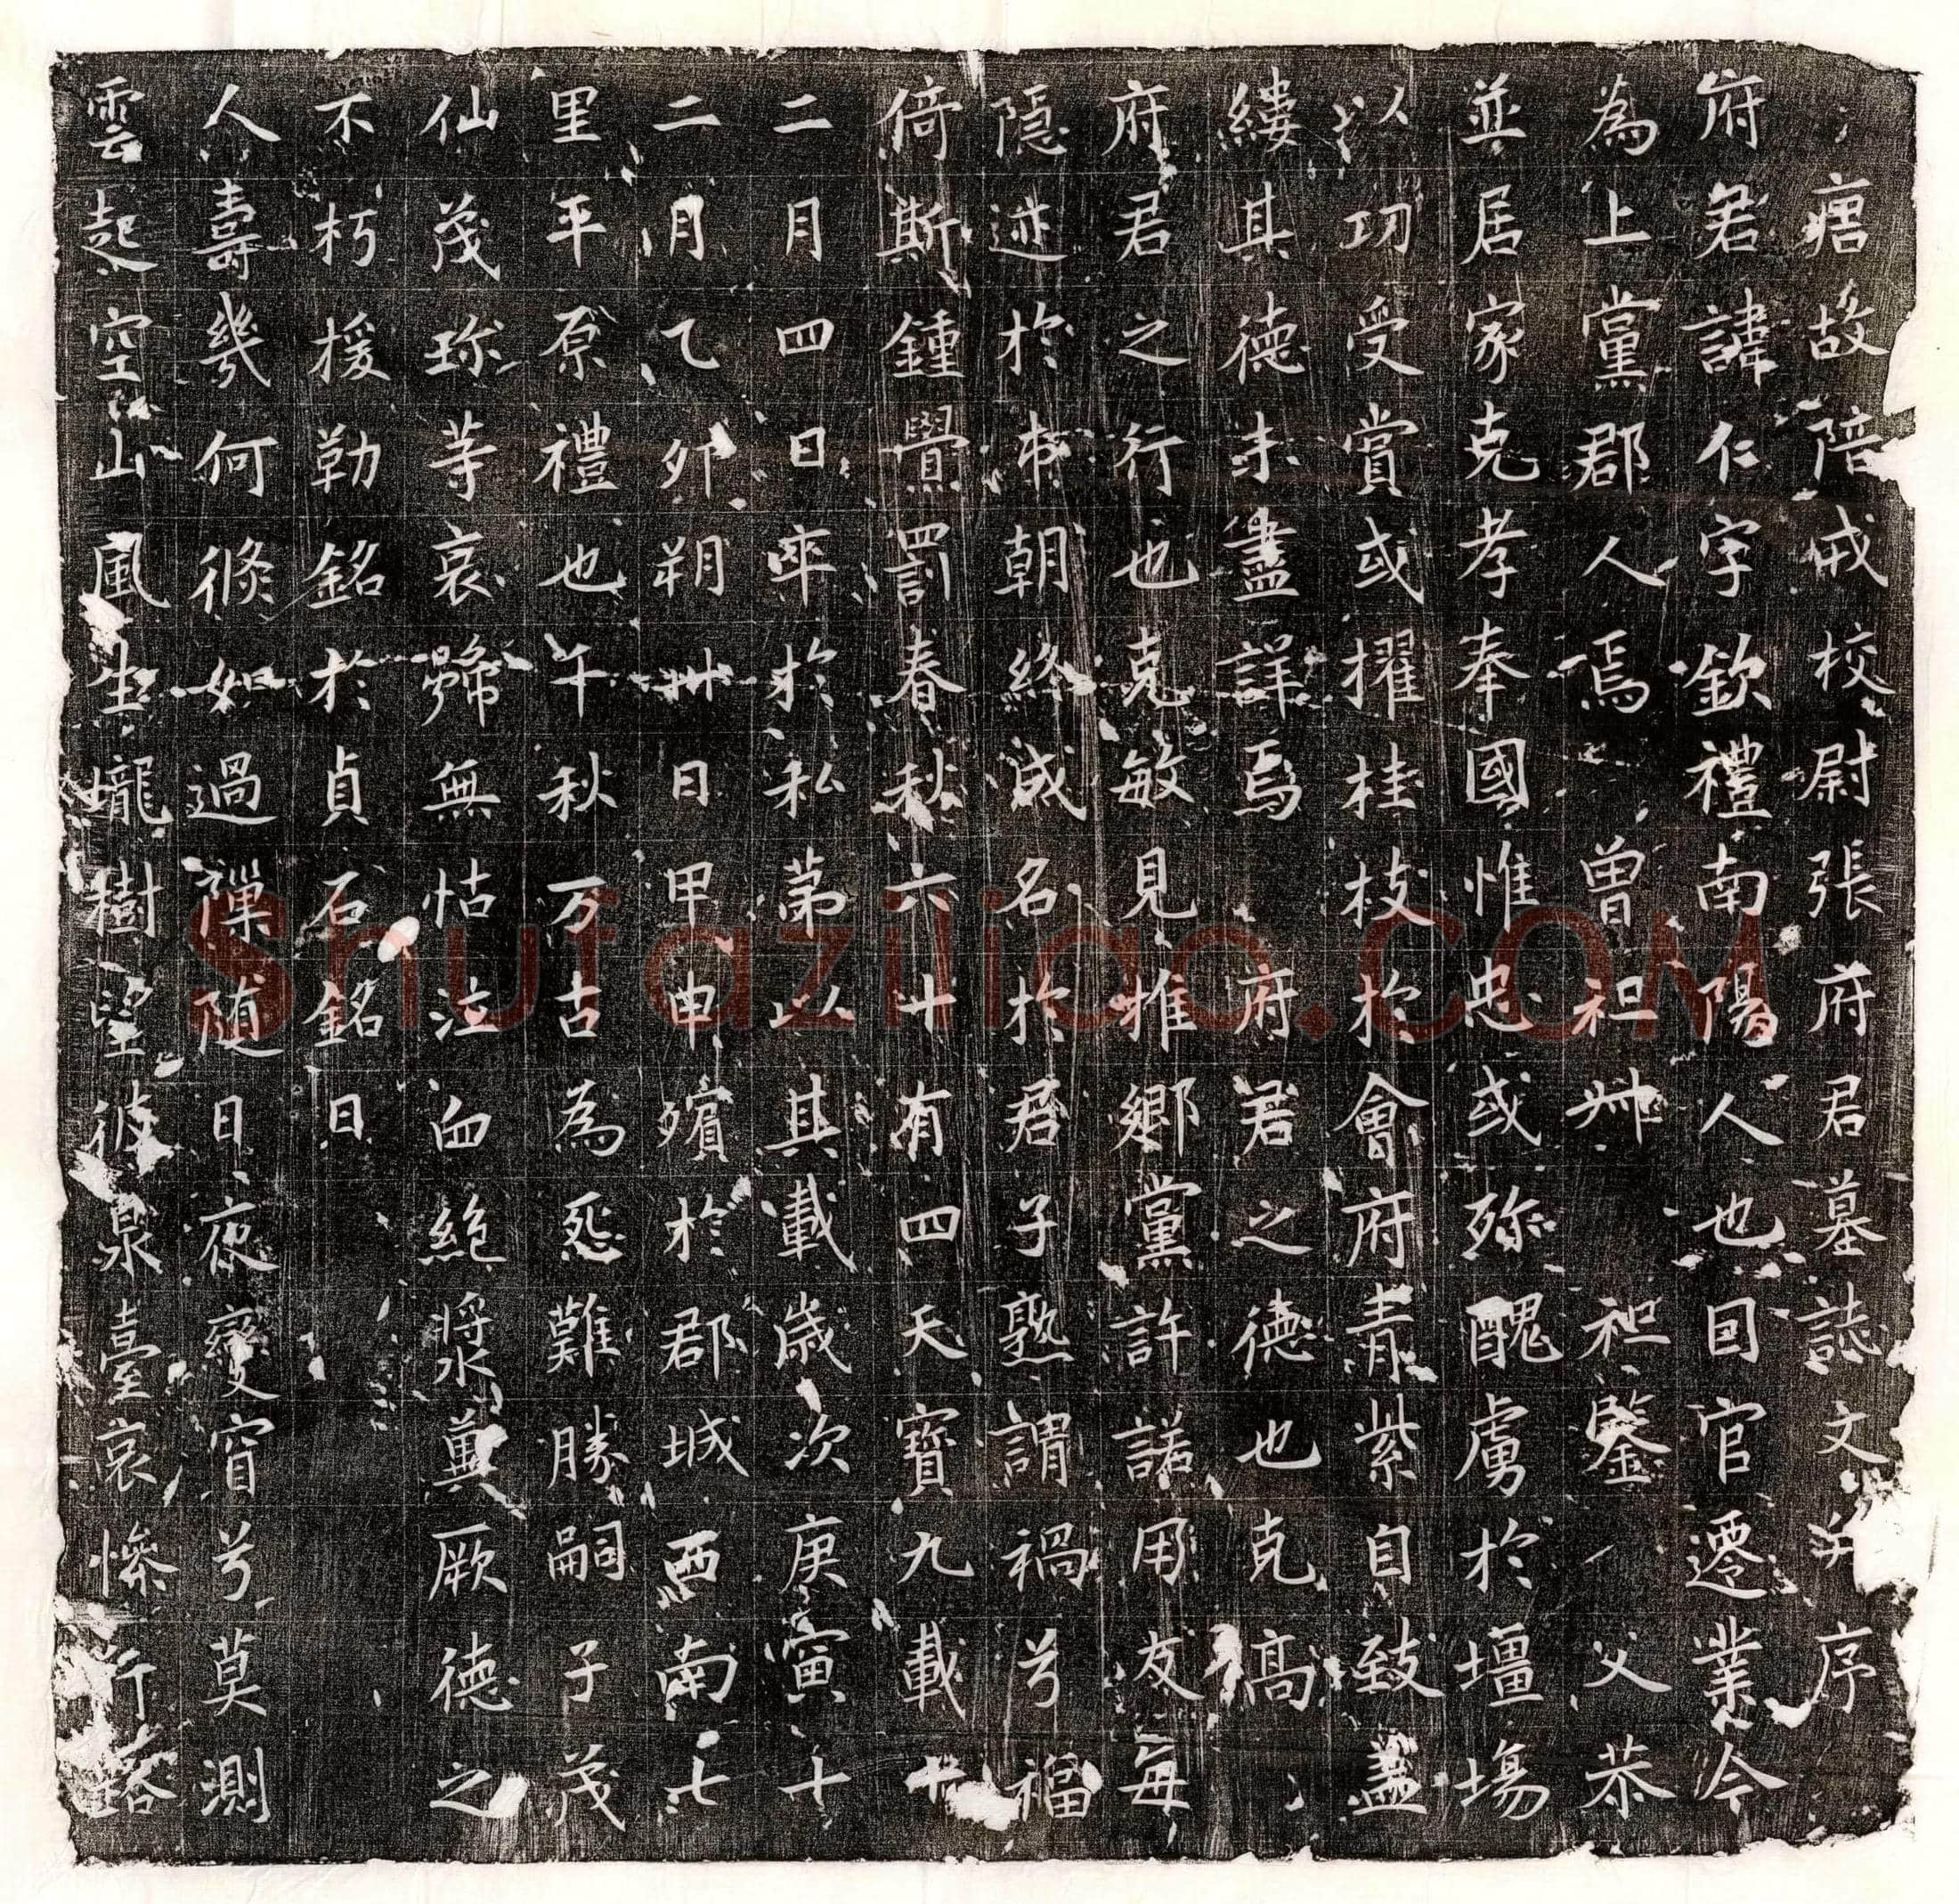 唐故陪戎校尉張府君墓誌文并序
府君諱仁字欽禮南陽人也因官遷業今
為上黨郡人焉 曾祖艸 祖鑒 父恭
並居家克孝奉國惟忠或殄醜虜於壃場
以功受賞或擢桂枝於會府青紫自致盖
縷其德未盡詳焉 府君之德也克高
府君之行也克敏見推鄉黨許諾用友每
隱迹於市朝終成名於君子孰謂禍兮福
倚斯鍾舋罰春秋六十有四天寶九載十
二月四日卒於私第以其載歲次庚寅十
二月乙卯朔卅日甲申殯於郡城西南七
里平原禮也千秋万古為恐難勝嗣子茂
仙茂珎等哀號無怙泣血絕漿冀厥德之
不朽援勒銘於貞石銘曰
人壽幾何倏如過禪随日夜變窅兮莫測
雲起空山風生壠樹望彼泉臺哀慘行路
Shufaziliao.COM